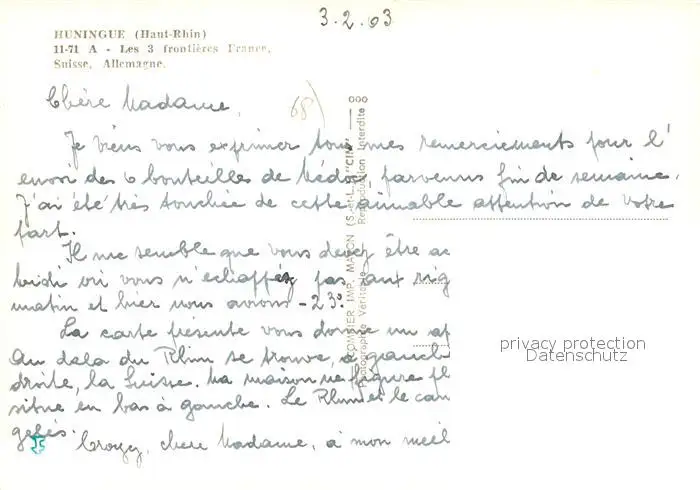 3.2.63
HUNINGUE (Haut-Rhin)
11-71 A - Les 3 frontières France,
Suisse, Allemagne.
68)
Chère Madame,
Je viens vous exprimer tous mes remerciements pour l'
envoi des 6 bouteilles de Médoc, parvenus fin de semaine.
J'ai été très touchée de cette aimable attention de votre
part.
Il me semble que vous devez être au
où vous n'échappez pas aux rig
matin et hier nous avions -23°.
La carte présente vous donne un ap
Au delà du Rhin se trouve, à gauch
droite, la Suisse. Ma maison ne figure p
située en bas à gauche. Le Rhin et le can
gelés.
Croyez, chère Madame, à mon meil
COMBIER IMP. MACON (S.-et-L.) "CIM"
Photographie Véritable Reproduction Interdite
privacy protection
Datenschutz